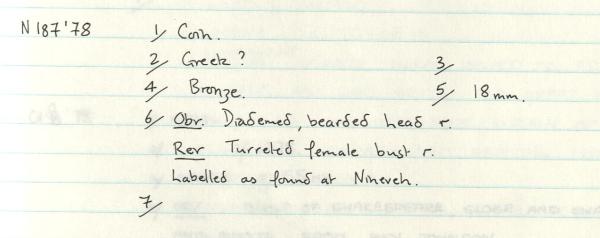 N 187'78 1/ Coin.
2/ Greek? 3/
4/ Bronze. 5/ 18mm.
6/ Obv. Diademed, bearded head r.
Rev Turreted female bust r.
Labelled as found at Nineveh.
7/